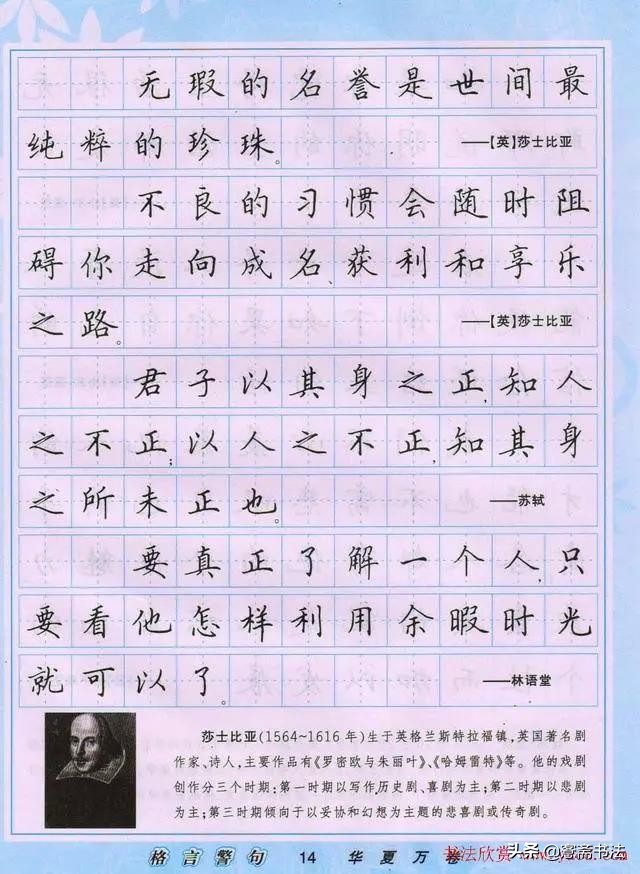 无瑕的名誉是世间最
纯粹的珍珠。 ——【英】莎士比亚
不良的习惯会随时阻
碍你走向成名、获利和享乐
之路。 ——【英】莎士比亚
君子以其身之正,知人
之不正;以人之不正,知其身
之所未正也。 ——苏轼
要真正了解一个人,只
要看他怎样利用余暇时光
就可以了。 ——林语堂
莎士比亚(1564~1616年)生于英格兰斯特拉福镇,英国著名剧
作家、诗人,主要作品有《罗密欧与朱丽叶》、《哈姆雷特》等。他的戏剧
创作分三个时期:第一时期以写作历史剧、喜剧为主;第二时期以悲剧
为主;第三时期倾向于以妥协和幻想为主题的悲喜剧或传奇剧。
格言警句 14 华夏万卷
书法欣赏 头条@鸾斋书法